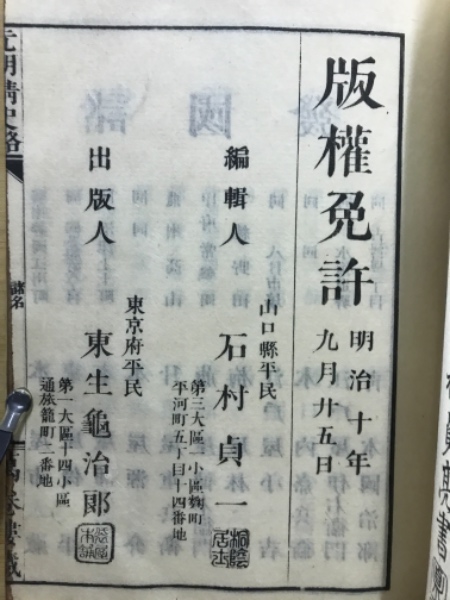 版權免許
明治十年
九月廿五日
編輯人
山口縣平民
石村貞一
第三大區一小區麴町
平河町五丁目十四番地
桐陰
居士
出版人
東京府平民
東生龜治郎
第一大區十四小區
通旅籠町二番地
元明清史略
諸名
萬卷樓藏